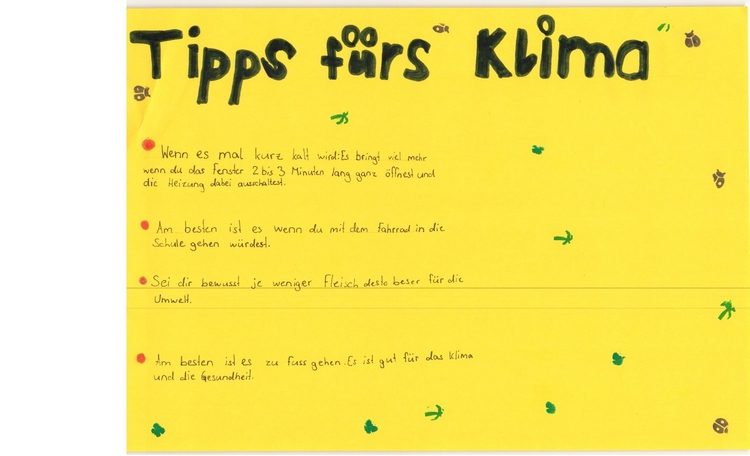 Tipps fürs Klima
Wenn es mal kurz kalt wird:Es bringt viel mehr
wenn du das Fenster 2 bis 3 Minuten lang ganz öffnest und
die Heizung dabei ausschaltest.
Am besten ist es wenn du mit dem Fahrrad in die
Schule gehen würdest.
Sei dir bewusst je weniger Fleisch desto beser für die
Umwelt.
Am besten ist es zu Fuss gehen. Es ist gut für das Klima
und die Gesundheit.